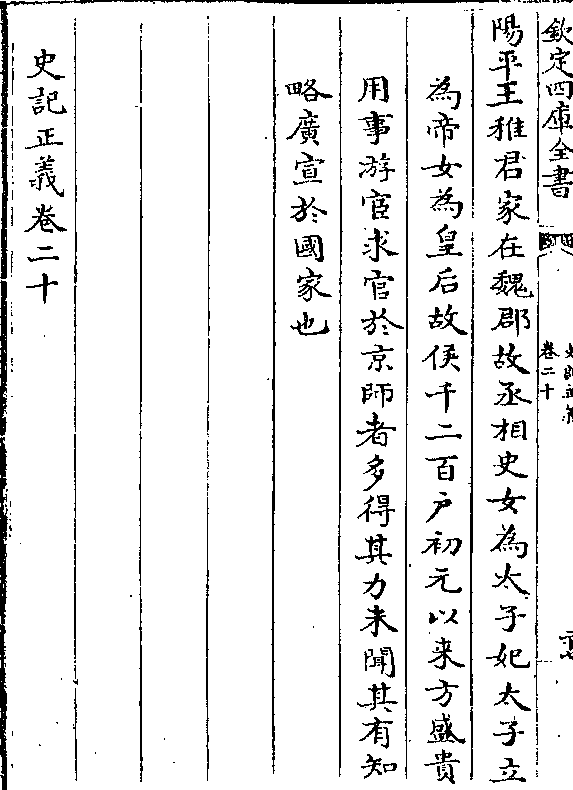 欽定四庫全書
史記正義
卷二十
二十七
陽平王稚君家在魏郡故丞相史女為太子妃太子立
為帝女為皇后故侯千二百户初元以来方盛貴
用事游宦求官於京師者多得其力未聞其有知
略廣宣於國家也
史記正義卷二十